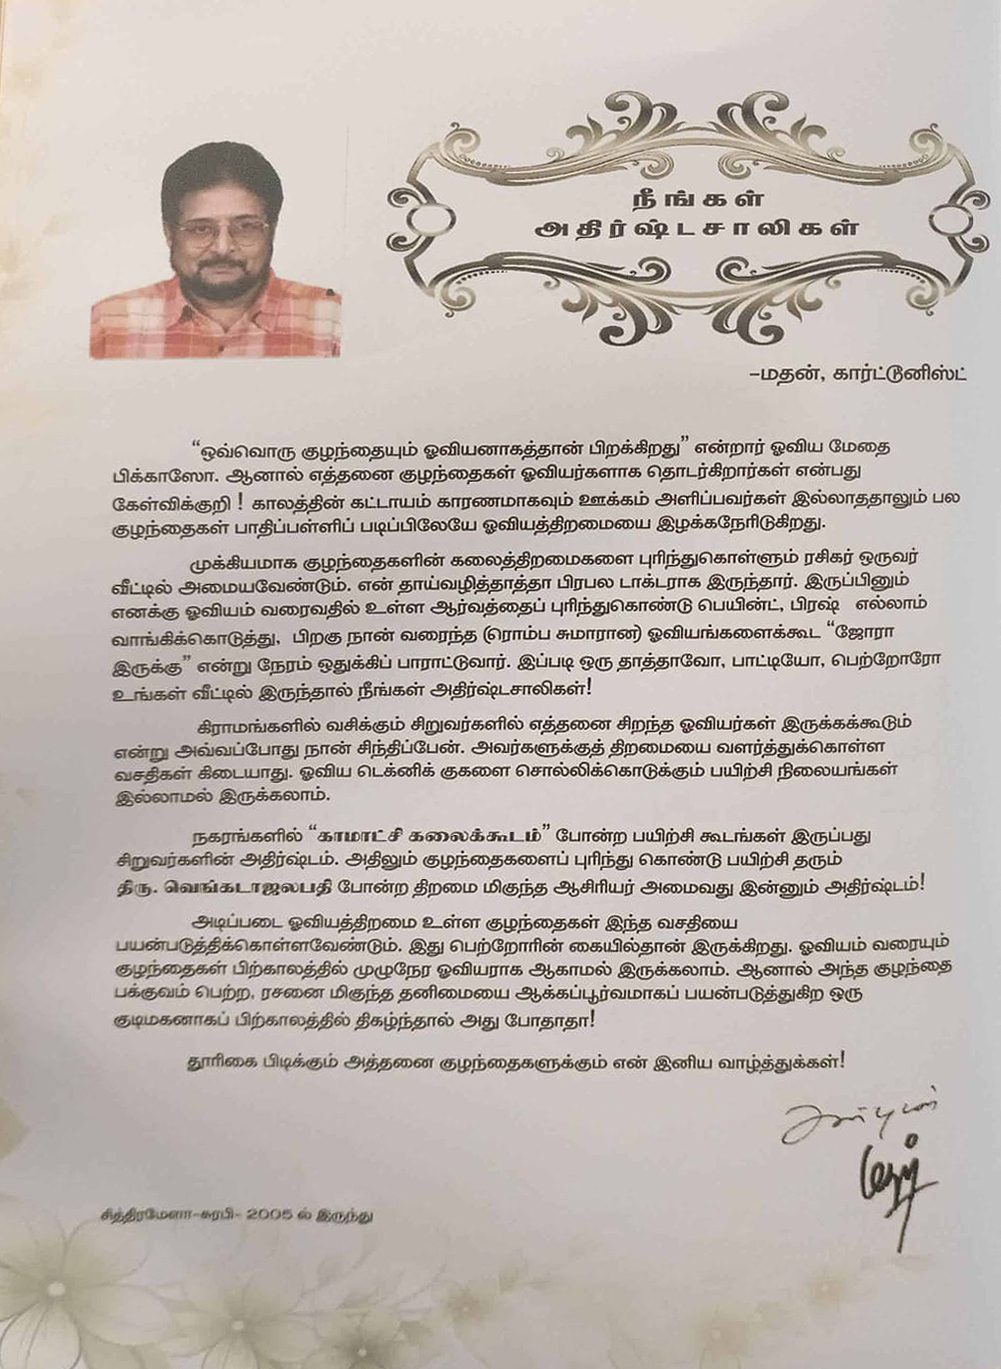 நீங்கள்
அதிர்ஷ்டசாலிகள்
-மதன், கார்ட்டூனிஸ்ட்
“ஒவ்வொரு குழந்தையும் ஓவியனாகத்தான் பிறக்கிறது” என்றார் ஓவிய மேதை
பிக்காஸோ. ஆனால் எத்தனை குழந்தைகள் ஓவியர்களாக தொடர்கிறார்கள் என்பது
கேள்விக்குறி ! காலத்தின் கட்டாயம் காரணமாகவும் ஊக்கம் அளிப்பவர்கள் இல்லாததாலும் பல
குழந்தைகள் பாதிப்பள்ளிப் படிப்பிலேயே ஓவியத்திறமையை இழக்கநேரிடுகிறது.
முக்கியமாக குழந்தைகளின் கலைத்திறமைகளை புரிந்துகொள்ளும் ரசிகர் ஒருவர்
வீட்டில் அமையவேண்டும். என் தாய்வழித்தாத்தா பிரபல டாக்டராக இருந்தார். இருப்பினும்
எனக்கு ஓவியம் வரைவதில் உள்ள ஆர்வத்தைப் புரிந்துகொண்டு பெயின்ட், பிரஷ் எல்லாம்
வாங்கிக்கொடுத்து, பிறகு நான் வரைந்த (ரொம்ப சுமாரான) ஓவியங்களைக்கூட “ஜோரா
இருக்கு” என்று நேரம் ஒதுக்கிப் பாராட்டுவார். இப்படி ஒரு தாத்தாவோ, பாட்டியோ, பெற்றோரோ
உங்கள் வீட்டில் இருந்தால் நீங்கள் அதிர்ஷ்டசாலிகள்!
கிராமங்களில் வசிக்கும் சிறுவர்களில் எத்தனை சிறந்த ஓவியர்கள் இருக்கக்கூடும்
என்று அவ்வப்போது நான் சிந்திப்பேன். அவர்களுக்குத் திறமையை வளர்த்துக்கொள்ள
வசதிகள் கிடையாது. ஓவிய டெக்னிக் குகளை சொல்லிக்கொடுக்கும் பயிற்சி நிலையங்கள்
இல்லாமல் இருக்கலாம்.
நகரங்களில் “காமாட்சி கலைக்கூடம்” போன்ற பயிற்சி கூடங்கள் இருப்பது
சிறுவர்களின் அதிர்ஷ்டம். அதிலும் குழந்தைகளைப் புரிந்து கொண்டு பயிற்சி தரும்
திரு. வெங்கடாஜலபதி போன்ற திறமை மிகுந்த ஆசிரியர் அமைவது இன்னும் அதிர்ஷ்டம்!
அடிப்படை ஓவியத்திறமை உள்ள குழந்தைகள் இந்த வசதியை
பயன்படுத்திக்கொள்ளவேண்டும். இது பெற்றோரின் கையில்தான் இருக்கிறது. ஓவியம் வரையும்
குழந்தைகள் பிற்காலத்தில் முழுநேர ஓவியராக ஆகாமல் இருக்கலாம். ஆனால் அந்த குழந்தை
பக்குவம் பெற்ற, ரசனை மிகுந்த தனிமையை ஆக்கப்பூர்வமாகப் பயன்படுத்துகிற ஒரு
குடிமகனாகப் பிற்காலத்தில் திகழ்ந்தால் அது போதாதா!
தூரிகை பிடிக்கும் அத்தனை குழந்தைகளுக்கும் என் இனிய வாழ்த்துக்கள்!
அன்புடன்
சித்திரமேளா-சுரபி- 2005 ல் இருந்து